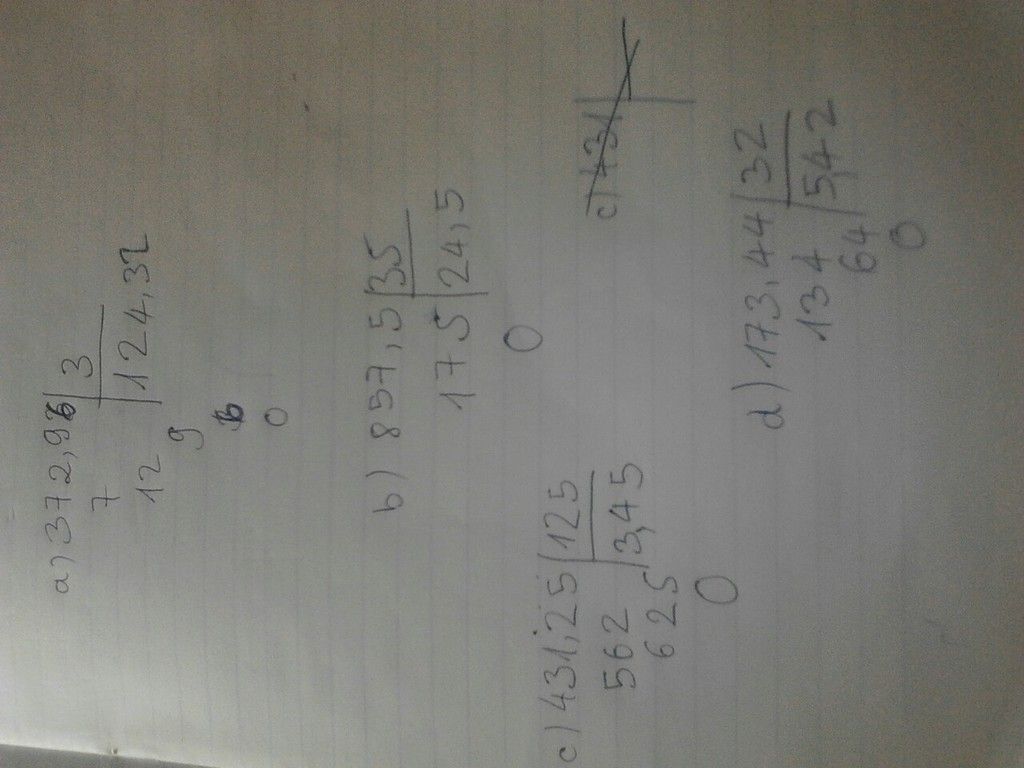 a) 372,96 | 3
7 | 124,32
12
9
6
0
b) 857,5 | 35
175 | 24,5
0
c) 431,25 | 125
562 | 3,45
625
0
c) 431
d) 173,44 | 32
134 | 5,42
64
0